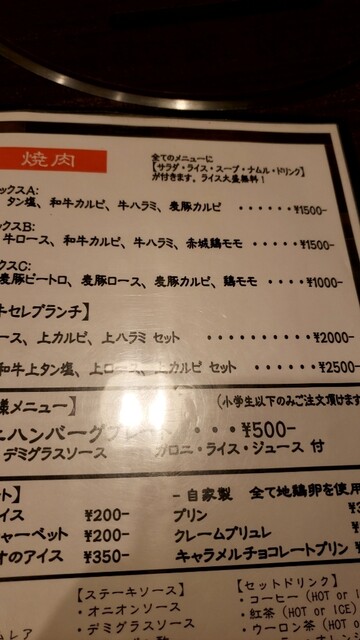 焼肉
全てのメニューに
【サラダ・ライス・スープ・ナムル・ドリンク】
が付きます。ライス大盛無料！
ックスA:
タン塩、和牛カルビ、牛ハラミ、麦豚カルビ ・・・・・・¥1500-
ックスB:
牛ロース、和牛カルビ、牛ハラミ、赤城鶏モモ ・・・・・¥1500-
クスC:
麦豚ピートロ、麦豚ロース、麦豚カルビ、鶏モモ ・・・・¥1000-
牛セレブランチ】
ース、上カルビ、上ハラミ セット ・・・・・・・・・・¥2000-
和牛上タン塩、上ロース、上カルビ セット ・・・・・・¥2500-
様メニュー】 (小学生以下のみご注文頂けます
ニハンバーグプレート ・・・¥500-
デミグラスソース カロニ・ライス・ジュース 付
ット】
イス ¥200-
ャーベット ¥200-
すのアイス ¥350-
- 自家製 全て地鶏卵を使用
プリン
クレームブリュレ
キャラメルチョコレートプリン
レア
【ステーキソース】
・オニオンソース
・デミグラスソース
【セットドリンク】
・コーヒー (HOT or I
・紅茶 (HOT or ICE)
・ウーロン茶 (HOT